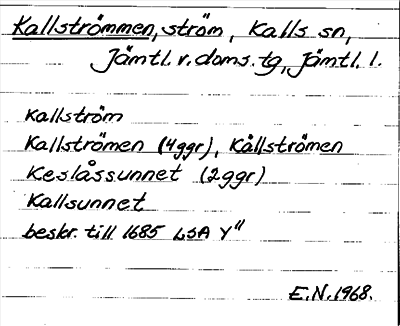 Kallströmmen, ström, Kalls sn,
Jämtl. v. doms. tg, Jämtl. l.
Kallström
Kallströmen (4ggr), Kållströmen
Keslåssunnet (2ggr)
Kallsunnet
beskr. till 1685 LSA Y"
E.N. 1968.